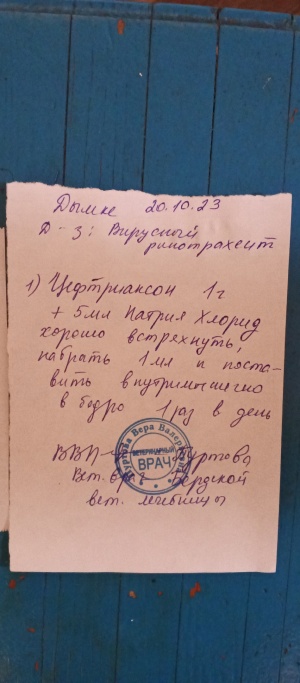 Дымке 20.10.23
Д-з: Вирусный
ринотрахеит
1) Цефтриаксон 1г
+ 5мл Натрия Хлорид
хорошо встряхнуть,
набрать 1мл и поста-
вить внутримышечно
в бедро 1 раз в день
ВВП- Буртова
Вет. врач Бердской
вет. лечебницы
Буртова Вера Валерьевна
ВЕТЕРИНАРНЫЙ
ВРАЧ